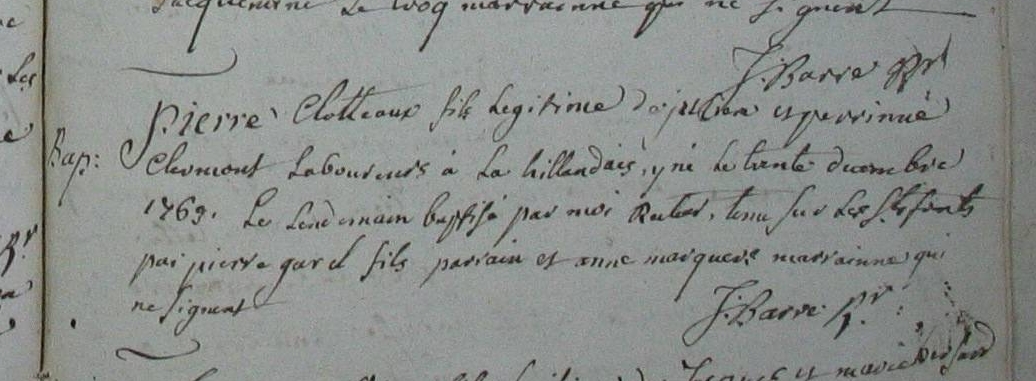 jacquemine Le Croq marrainne qui ne signent
J. Barre Rr
Pierre Clotteaux fils Legitime de jullien et perrinne
Bap:
Clermont Laboureurs à La hillandais, y né Le trente decembre
1769. Le Lendemain baptisé par moi Recteur, tenu sur Les Sts fonts
par pierre garel fils parrain et anne marquere marrainne qui
ne signent
J. Barre Rr:
et marie